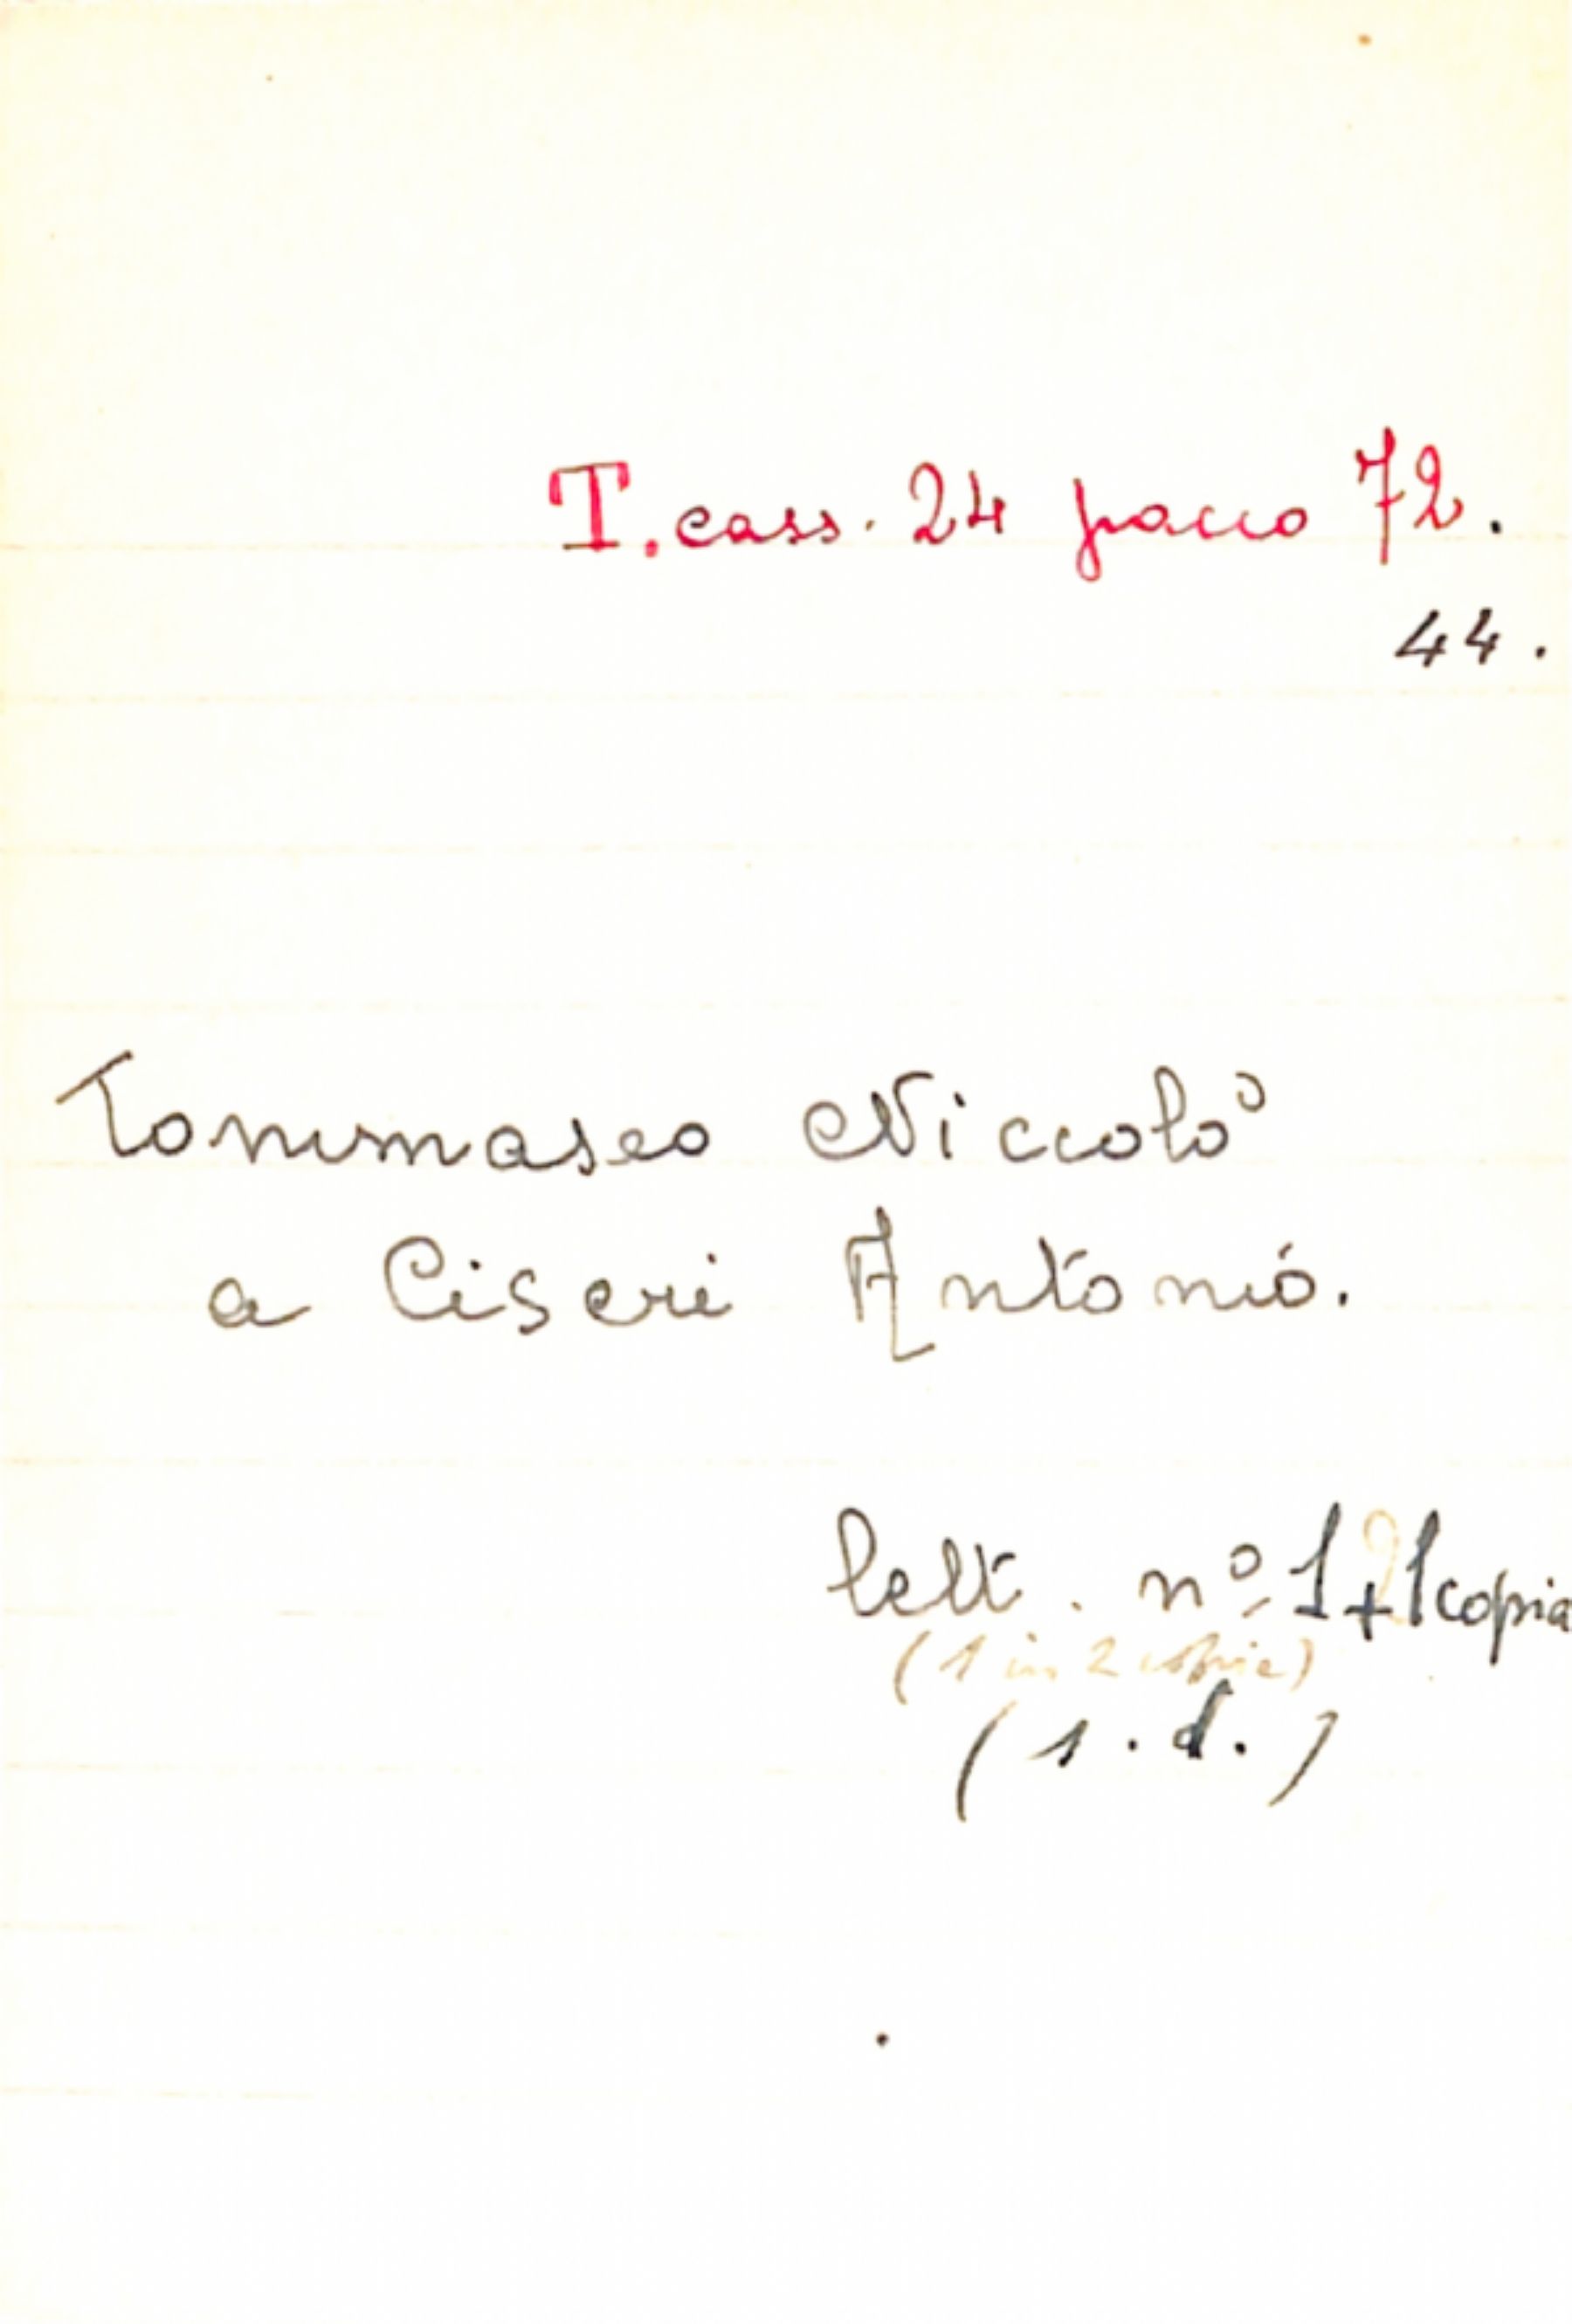 T. cass. 24 pacco 72.
44.
Tommaseo Niccolò
a Ciseri Antonio.
lett. nº 1 + 1 copia
(1 in 2 copie)
(s.d.)